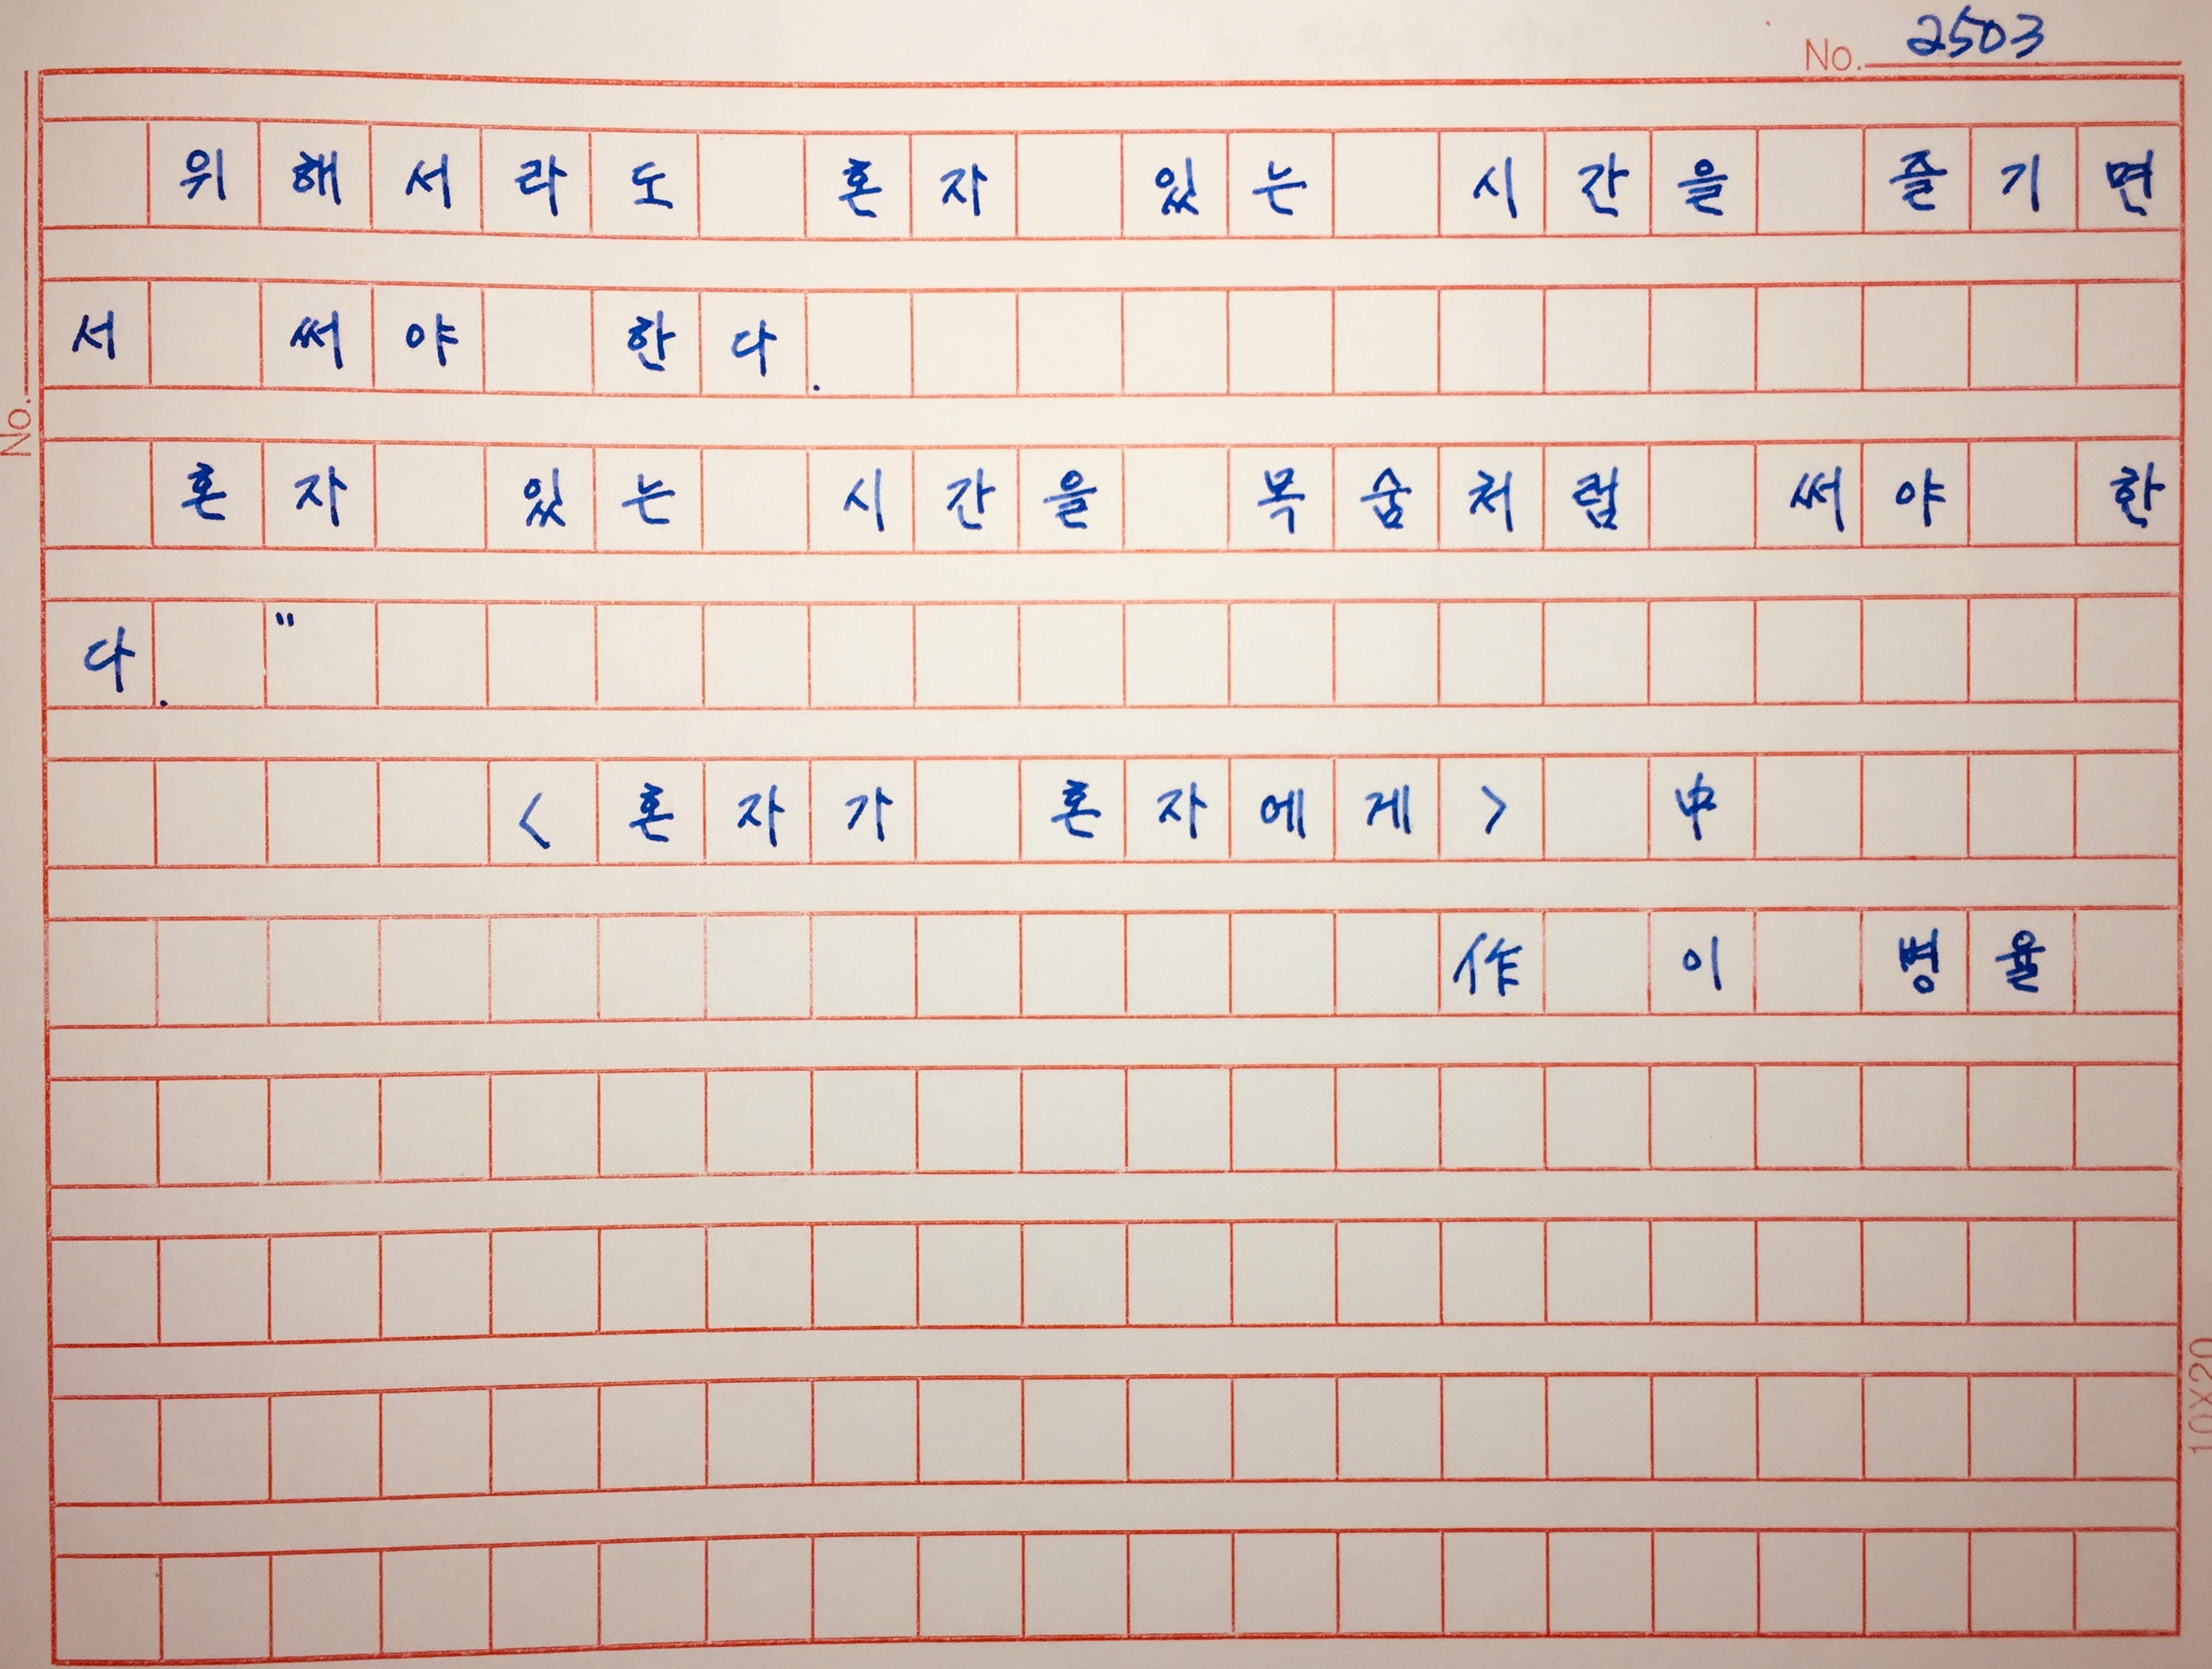 No. 2503
위해서라도 혼자 있는 시간을 즐기면
서 써야 한다.
혼자 있는 시간을 목숨처럼 써야 한
다. "
<혼자가 혼자에게> 中
作 이 병률
No.
10X20